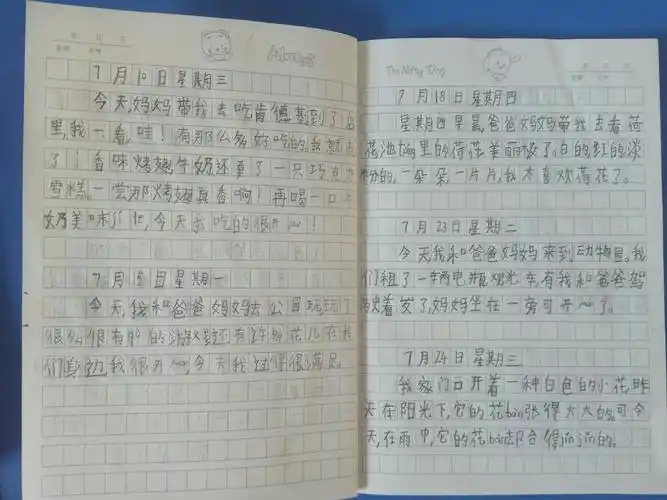 7月10日星期三
今天,妈妈带我去吃肯德基到了店
里,我一看,哇!有那么多好吃的,我就点
了香味烤翅,牛奶还要了一只巧克力
雪糕,一尝那烤翅真香啊!再喝一口牛
奶美味,今天我吃的很开心!
7月15日星期一
今天,我和爸爸妈妈去公园玩,玩了
很多很有的游戏还有许多花儿在我
们身边,我很开心,今天我过得很满足。
The Nifty Dog
7月18日星期四
星期四早晨,爸爸妈妈带我去看荷
花池tang里的荷花美丽极了。白的,红的,淡
粉的,一朵朵一片片,我太喜欢荷花了。
7月23日星期二
今天我和爸爸妈妈来到动物园。我
们租了一辆电瓶观光车,有我和爸爸驾
驶着发了,妈妈坐在一旁可开心了。
7月24日星期三
我家门口开着一种白色的小花,昨
天在阳光下,它的花ban张得大大的,可今
天,在雨中,它的花ban却合得jin jin的。